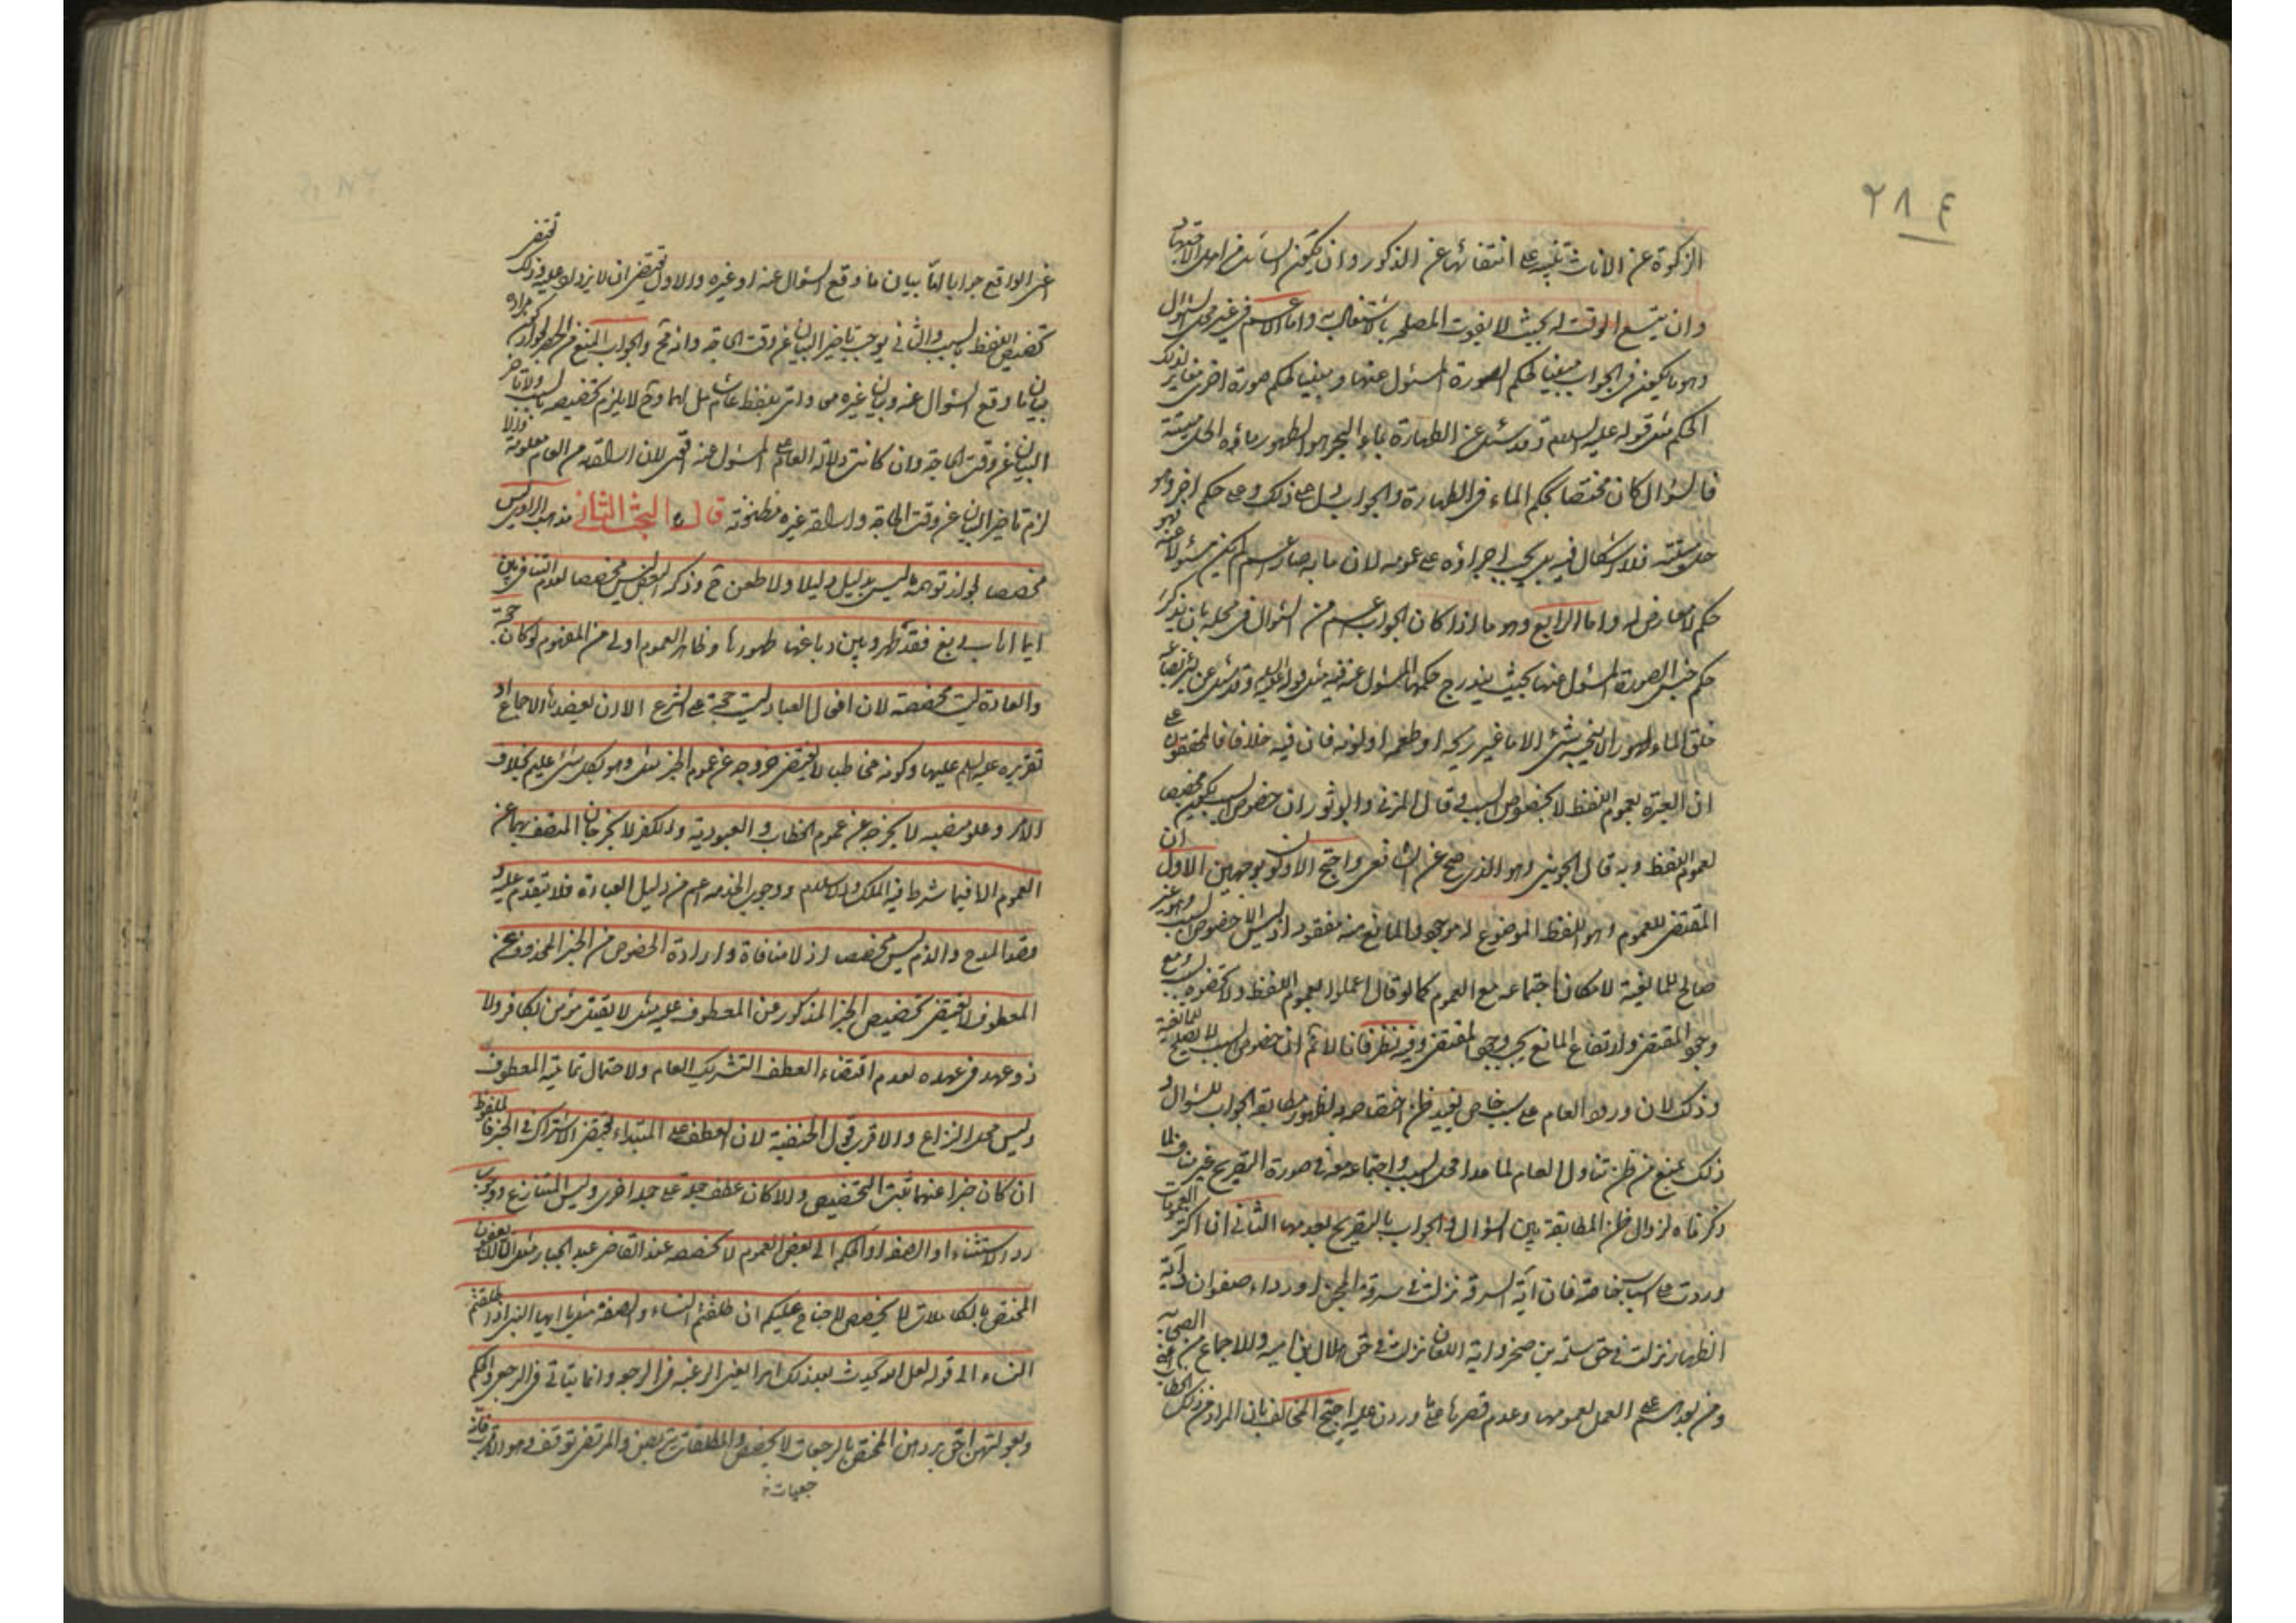 ٢٨٤
الزكوة عن الاناث تنبيه على انتفائها عن الذكور وان يكون السائل من اهل الاجتهاد
وان يتسع الوقت له بحيث لا يفوت المصلحة بالاشتغال به واما الاعم في غير محل السؤال
وهو ما يكون في الجواب مبينا لحكم الصورة المسئول عنها ومبينا لحكم صورة اخرى مغاير لذلك
الحكم مثل قوله عليه السلام وقد سئل عن الطهارة بماء البحر هو الطهور ماؤه الحل ميتته
فالسؤال كان مختصا بحكم الماء في الطهارة والجواب يدل على ذلك وعلى حكم اخر وهو
حل ميتته فلا اشكال فيه بل يجب اجراؤه على عمومه لان ما به صار اعم لم يكن مسئولا عنه فهو
حكم لا معارض له واما الرابع وهو ما اذا كان الجواب اعم من السؤال في محله بان يذكر
حكم جنس الصورة المسئول عنها بحيث يندرج حكمها المسئول عنه فيه مثل قوله عليه السلام وقد سئل عن بئر بضاعة
خلق الماء طهورا لا ينجسه شئ الا ما غير ريحه او طعمه او لونه فان فيه خلافا فالمحققون على
ان العبرة بعموم اللفظ لا بخصوص السبب وقال المزني وابو ثور ان خصوص السبب يكون مخصصا
لعموم اللفظ وبه قال الجويني وهو الذي صح عن الشافعي واحتج الاولون بوجهين الاول ان
المقتضي للعموم وهو اللفظ الموضوع له موجود والمانع منه مفقود اذ ليس الا خصوص السبب وهو غير
صالح للمانعية لامكان اجتماعه مع العموم كما لو قال اعملوا بعموم اللفظ ولا تخصوه بالسبب ومع
وجود المقتضي وارتفاع المانع يجب وجود المقتضى وفيه نظر فانا لا نم ان خصوص السبب لا يصلح للمانعية
وذلك لان ورود العام على سبب خاص يفيد ظن اختصاصه به لظهور مطابقة الجواب للسؤال و
ذلك يمنع من ظن تناول العام لما عدا محل السبب واجتماعه معه في صورة التصريح غير مناف لما
ذكرناه لزوال ظن المطابقة بين السؤال والجواب بالتصريح بعدمها الثاني ان اكثر العمومات
وردت على اسباب خاصة فان آية السرقة نزلت في سرقة المجن او رداء صفوان وآية
الظهار نزلت في حق سلمة بن صخر واية اللعان نزلت في حق هلال بن امية والاجماع من الصحابة
ومن بعدهم على العمل بعمومها وعدم قصرها على ما وردت عليه احتج المخالف بان المراد من ذلك الخطاب
اعني الواقع جوابا اما بيان ما وقع السؤال عنه او غيره والاول يقتضي ان لا يزاد عليه وذلك يقتضي
تخصيص اللفظ بالسبب والثاني يوجب تاخير البيان عن وقت الحاجة وانه مح والجواب المنع من الحصر لجواز كون مراده
بيان ما وقع السؤال عنه وبيان غيره معا واتى بلفظ عام شامل لهما وح لا يلزم تخصيصه بالسبب ولا تاخير
البيان عن وقت الحاجة وان كانت دلالة العام على المسئول عنه اقوى لان ارادته من العام معلومة والا
لزم تاخير البيان عن وقت الحاجة وارادة غيره مظنونة قال ره البحث الثاني مذهب الراوي ليس
مخصصا لجواز توهمه ما ليس بدليل دليلا ولا طعن ح وذكر البعض ليس مخصصا لعدم التنافي بين
ايما اهاب دبغ فقد طهر وبين دباغها طهورها وظاهر العموم اولى من المفهوم لو كان حجة
والعادة ليست مخصصة لان افعال العباد ليست حجة على الشرع الا ان يعضدها الاجماع او
تقريره عليه السلم عليها وكونه مخاطبا لا يقتضي خروجه عن عموم الخبر مثل وهو بكل شئ عليم بخلاف
الامر وعلو منصبه لا يخرجه عن عموم الخطاب والعبودية والكفر لا يخرجان المتصف بهما عن
العموم الا فيما شرط فيه الملك والاسلام ووجوب الخدمة اعم من دليل العبادة فلا يتقدم عليه و
قصد المدح والذم ليس مخصصا اذ لا منافاة وارادة الخصوص من الخبر المحذوف عن
المعطوف لا يقتضي تخصيص الخبر المذكور عن المعطوف عليه مثل لا يقتل مؤمن بكافر ولا
ذو عهد في عهده لعدم اقتضاء العطف التشريك العام ولاحتمال تمامية المعطوف
وليس محل النزاع والاقرب قول الحنفية لان العطف على المبتداء يقتضي الاشتراك في الخبر فالملفوظ
ان كان خبرا عنهما ثبت التخصيص والا كان عطف جملة على جملة اخرى وليس المتنازع ووجوب
رد الاستثناء او الصفة او الحكم الى بعض العموم لا يخصصه عند القاضي عبد الجبار مثل الا ان يعفون
المختص بالكاملات لا يخصص لا جناح عليكم ان طلقتم النساء والصفة مثل يا ايها النبي اذا طلقتم
النساء الى قوله لعل الله يحدث بعد ذلك امرا يعني الرغبة في الرجوع وانما يتاتى في الرجعي والحكم
وبعولتهن احق بردهن المختص بالرجعيات لا يخصص والمطلقات يتربصن والمرتضى توقف وهو الاقرب
جعيات